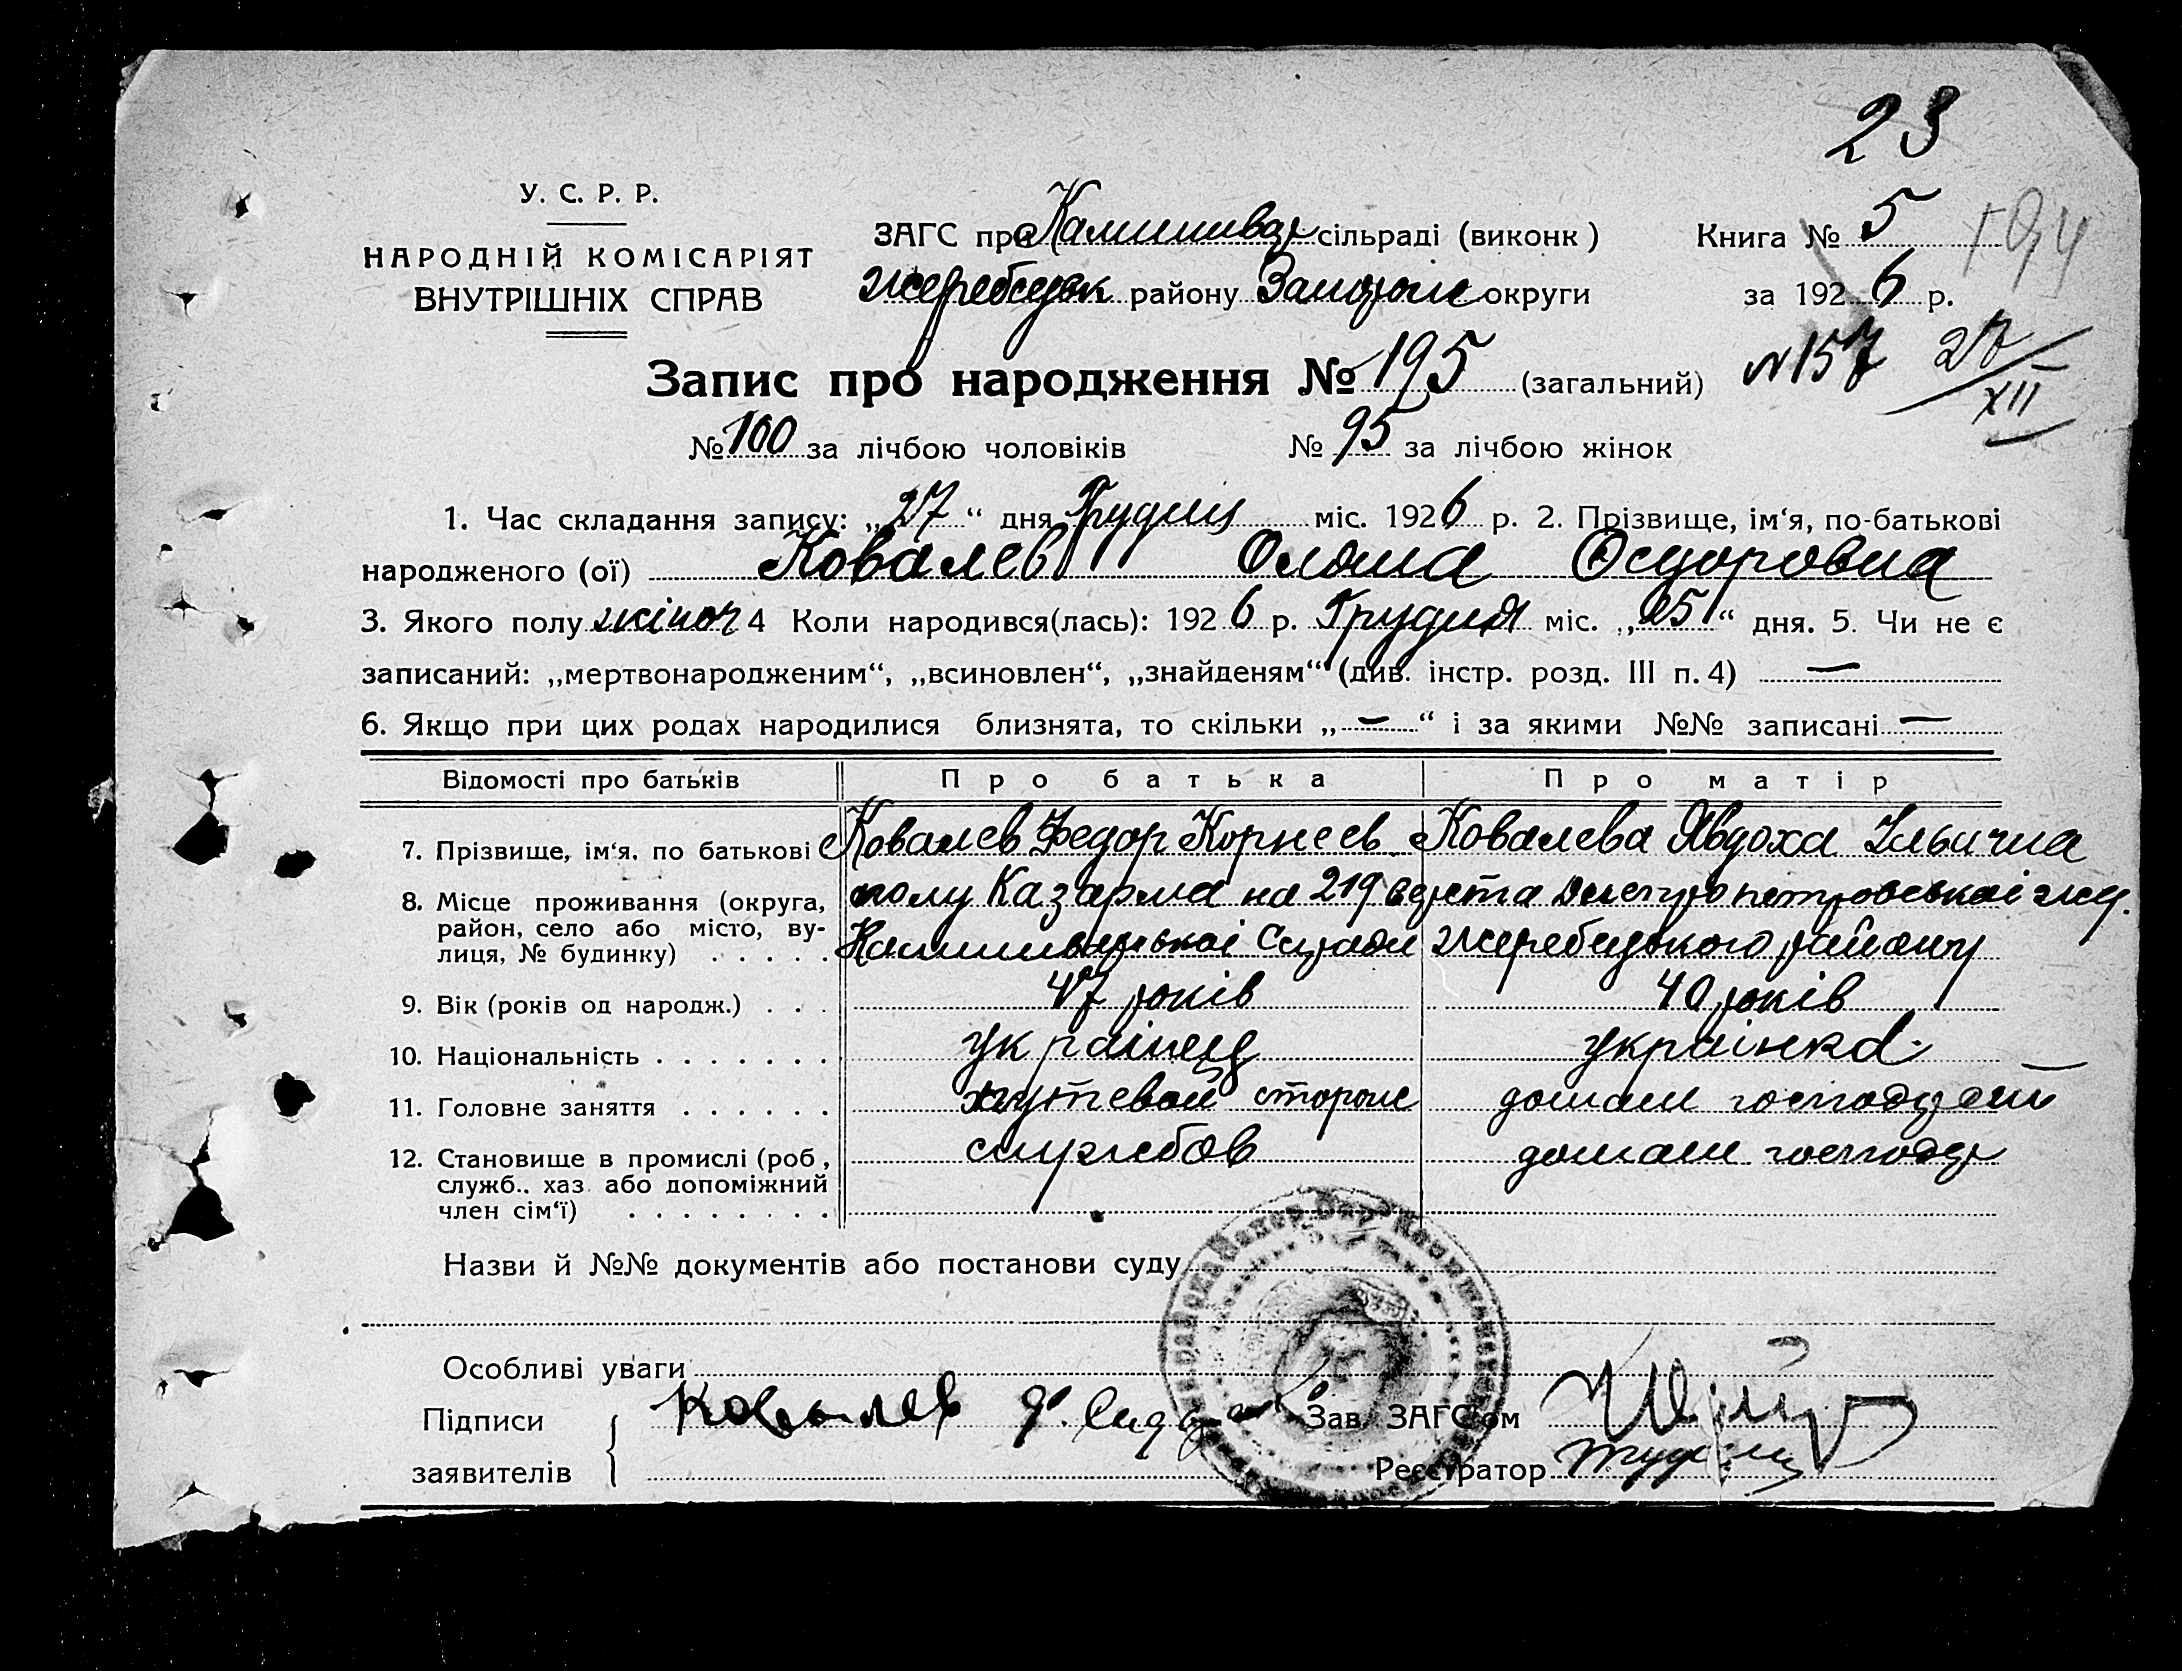 23
У. С. Р. Р.
НАРОДНІЙ КОМІСАРІЯТ
ВНУТРІШНІХ СПРАВ
ЗАГС при сільраді (виконк)
Жеребецьк району Запоріж округи
Книга № 5
за 1926 р.
Запис про народження № 195 (загальний)
№157 27/XII
№ 100 за лічбою чоловіків № 95 за лічбою жінок
1. Час складання запису: „27“ дня Грудня міс. 1926 р. 2. Прізвище, ім‘я, по-батькові
народженого (ої) Ковалев Олена Федоровна
3. Якого полу жіноч 4 Коли народився(лась): 1926 р. Грудня міс. „25“ дня. 5. Чи не є
записаний: „мертвонародженим“, „всиновлен“, „знайденям“ (див. інстр. розд. III п. 4) —
6. Якщо при цих родах народилися близнята, то скільки „—“ і за якими №№ записані —
Відомості про батьків Про батька Про матір
7. Прізвище, ім‘я, по батькові Ковалев Федор Корнеев Ковалева Явдоха Ильична
8. Місце проживання (округа, район, село або місто, вулиця, № будинку) Казарма на 219 верста Днепропетровськоі
Сіради Жеребецького району
9. Вік (років од народж.) 47 років 40 років
10. Національність українец українка
11. Головне заняття путевой сторож домаш господар
12. Становище в промислі (роб, служб., хаз або допоміжний член сім‘ї) службов домаш господар
Назви й №№ документів або постанови суду
Особливі уваги
Підписи
заявителів Ковалев
Зав. ЗАГС‘ом
Реєстратор